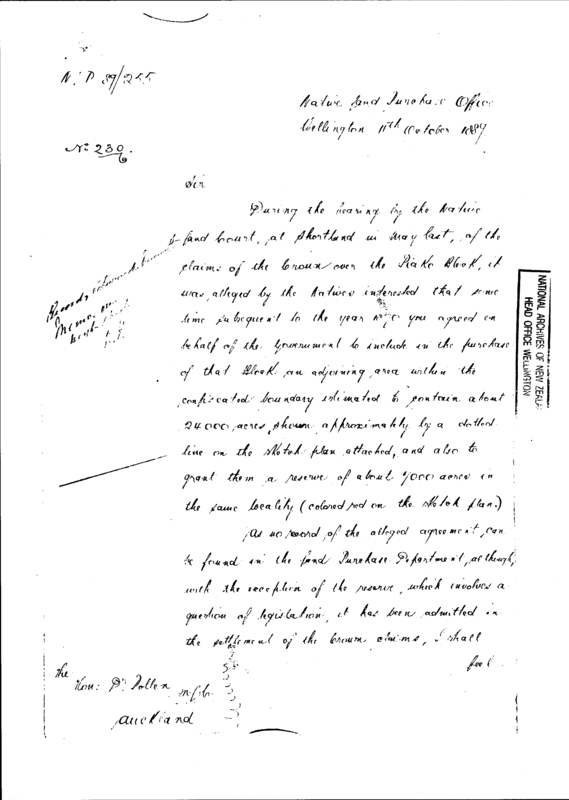 N.P 89/255
Native Land Purchase Office
Wellington 11th October 1889
No 230.
Sir
During the hearing by the Native
Land Court, at Shortland in May last, of the
claims of the Crown over the Piako Block, it
was alleged by the Natives interested that some
time subsequent to the year you agreed on
behalf of the Government to include in the purchase
of that Block an adjoining area within the
confiscated boundary estimated to contain about
24000 acres, shown approximately by a dotted
line on the Sketch plan attached, and also to
grant them a reserve of about 7000 acres in
the same locality (colored red on the Sketch plan.)
As no record of the alleged agreement can
be found in the Land Purchase Department, although,
with the exception of the reserve, which involves a
question of legislation, it has been admitted in
the settlement of the Crown claims, I shall
feel
The
Hon: Dr Pollen M.L.C.
Auckland
Records
Memo on
NATIONAL ARCHIVES OF NEW ZEALA
HEAD OFFICE WELLINGTON